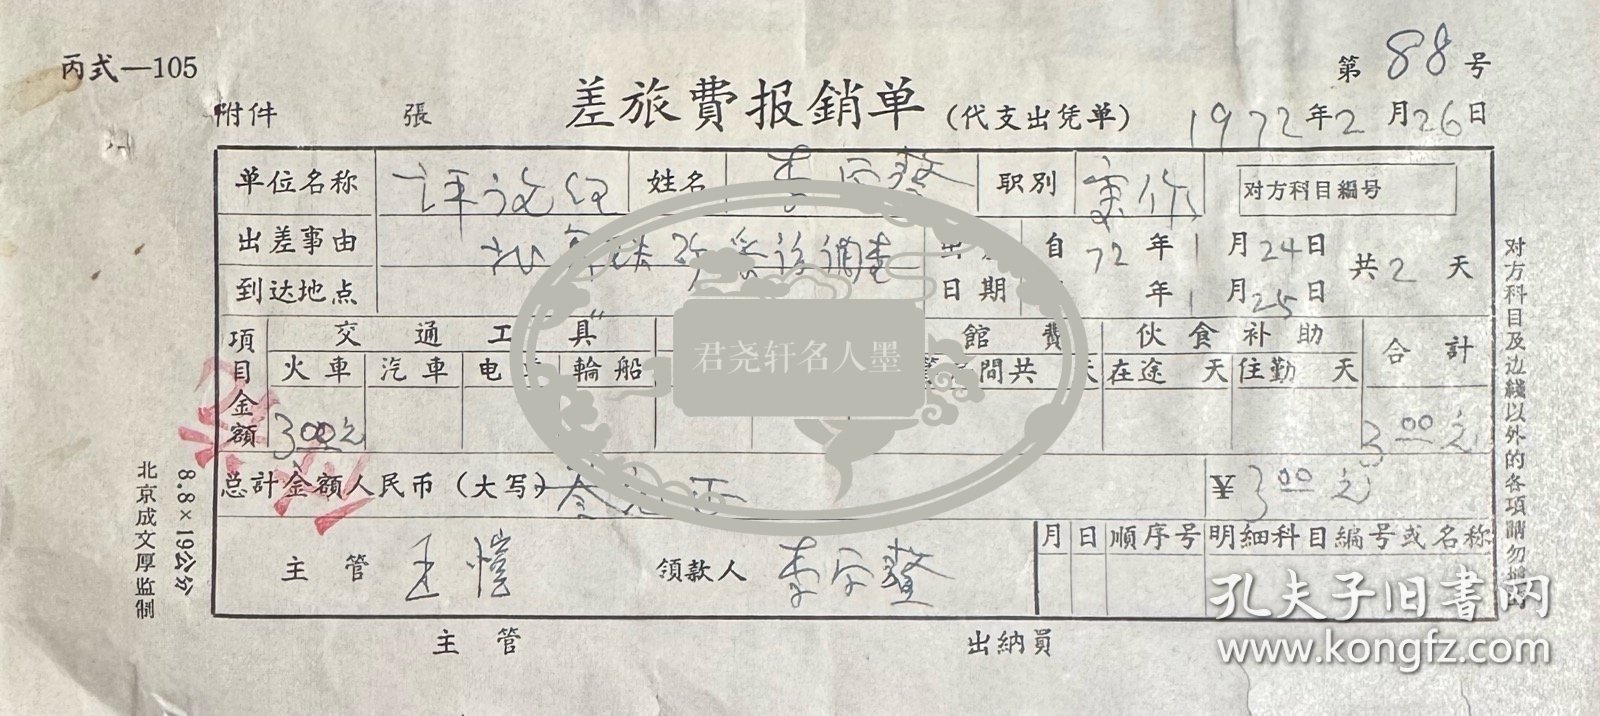 丙式—105
第 88 号
附件 張 差旅費报銷单 (代支出凭单) 1972年2月26日
单位名称 姓名 职别 对方科目編号
出差事由 自72年1月24日 共2天
到达地点 日期 年1月25日
項目金額 交通工具 館費 伙食补助 合計
火車 汽車 电 輪船 間共 天 在途 天 住勤 天
3 00 元 3 00 元
总計金額人民币(大写) 叁元正 ¥3 00 元
月 日 順序号 明細科目編号或名称
主管 王愷 領款人
主管 出納員
对方科目及边綫以外的各項請勿填写
8.8×19公分
北京成文厚监制
君尧轩名人墨
孔夫子旧书网
www.kongfz.com